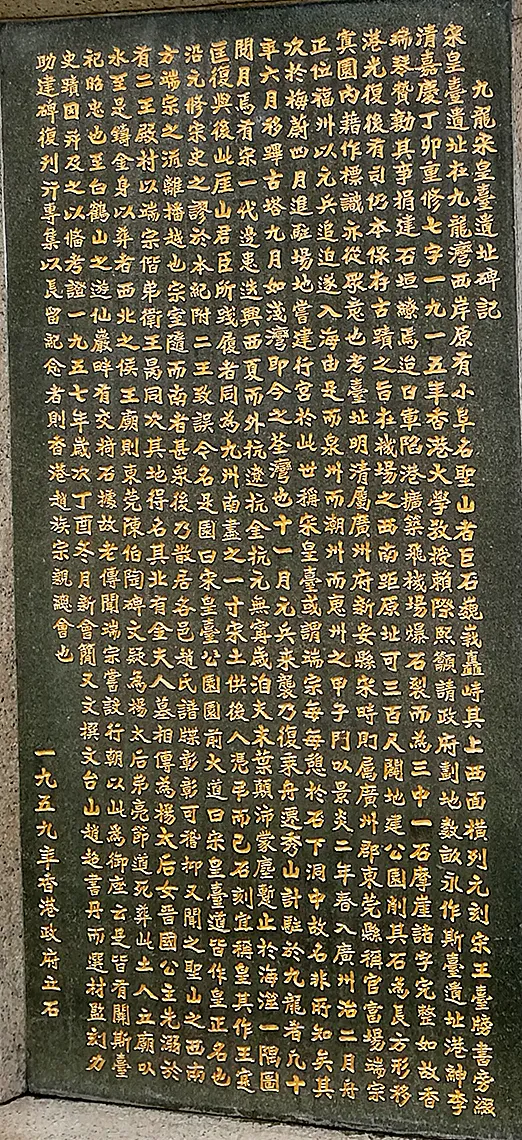 九龍宋皇臺遺址碑記
宋皇臺遺址在九龍灣西岸原有小阜名聖山者巨石巍峩矗峙其上西面橫列元刻宋王臺牓書旁綴
清嘉慶丁卯重修七字一九一五年香港大學教授賴際熙籲請政府劃地數畝永作斯臺遺址港紳李
瑞琴贊勷其事捐建石垣繚焉迨日軍陷港擴築飛機場爆石裂而為三中一石摩崖諸字完整如故香
港光復後有司仍本保存古蹟之旨在機場之西南距原址可三百尺闢地建公園削其石為長方形移
寘園內藉作標識亦從眾意也考臺址明清屬廣州府新安縣宋時則屬廣州郡東莞縣稱官富場端宗
正位福州以元兵追迫遂入海由是而泉州而潮州而惠州之甲子門以景炎二年春入廣州治二月舟
次於梅蔚四月進駐場地嘗建行宮於此世稱宋皇臺或謂端宗每每憩於石下洞中故名非所知矣其
年六月移蹕古塔九月如淺灣即今之荃灣也十一月元兵來襲乃復乘舟遷秀山計駐於九龍者凡十
閱月焉有宋一代邊患迭興西夏而外抗遼抗金抗元無甯歲洎夫末葉顛沛蒙塵暫止於海澨一隅圖
匡復興後此厓山君臣所踐履者同為九州南盡之一寸宋土供後人憑弔而已石刻宜稱皇其作王寔
沿元修宋史之謬於本紀附二王致誤今名是園曰宋皇臺公園園前大道曰宋皇臺道皆作皇正名也
方端宗之流離播越也宗室隨而南者甚眾後乃散居各邑趙氏譜牒彰彰可稽抑又聞之聖山之西南
有二王殿村以端宗偕弟衛王昺同次其地得名其北有金夫人墓相傳為楊太后女晉國公主先溺於
水至是鑄金身以葬者西北之侯王廟則東莞陳伯陶碑文疑為楊太后弟亮節道死葬此土人立廟以
祀昭忠也至白鶴山之遊仙巖畔有交椅石據故老傳聞端宗嘗設行朝以此為御座云是皆有關斯臺
史蹟因并及之以備考證一九五七年歲次丁酉冬月新會簡又文撰文台山趙超書丹而選材監刻力
助建碑復刊行專集以長留記念者則香港趙族宗親總會也
一九五九年香港政府立石